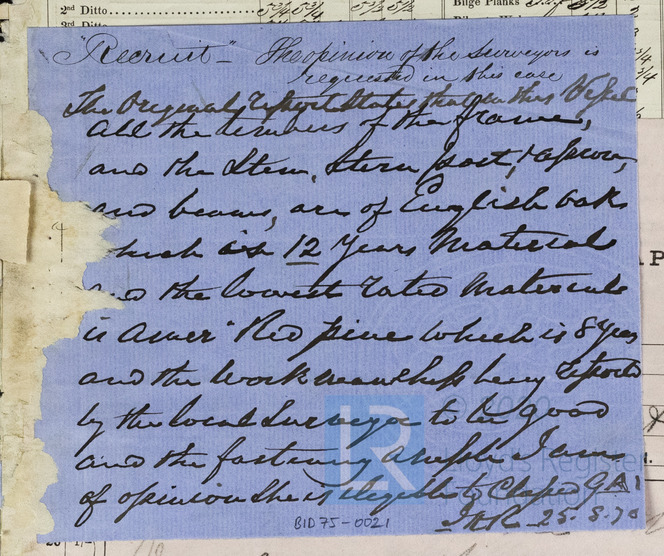 2nd Ditto
Bilge Planks
"Recruit" - The opinion of the Surveyors is
requested in this case
The Original Report States that in this Vessel
all the timbers of the frame,
and the Stem, Stern post, Apron,
and beams, are of English Oak
which is 12 Years Material
and the lowest rated Materials
is Amer" Red pine which is 8 Years
and the Workmanship being reported
by the local Surveyor to be good
and the fastening ample I am
of opinion She is eligible to Class 9 A1
25.8.70
© 2020
LR
Lloyd's Register
Foundation
BID75-0021